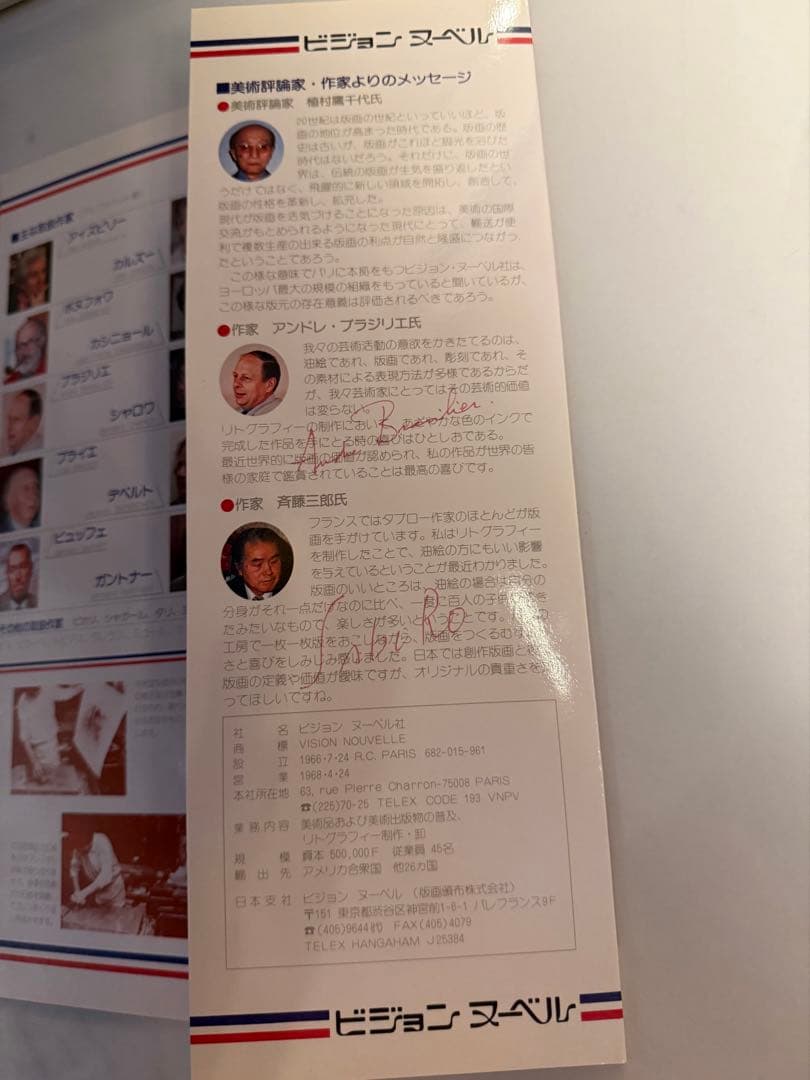 ビジョン ヌーベル
■美術評論家・作家よりのメッセージ
●美術評論家　植村鷹千代氏
20世紀は版画の世紀といっていいほど、版
画の地位が高まった時代である。版画の歴
史は古いが、版画がこれほど脚光を浴びた
時代はないだろう。それだけに、版画の世
界は、伝統の版画が生気を盛り返したとい
うだけではなく、飛躍的に新しい領域を開拓し、創造して、
版画の性格を革新し、拡充した。
現代が版画を活気づけることになった原因は、美術の国際
交流がもとめられるようになった現代にとって、輸送が便
利で複数生産の出来る版画の利点が自然と隆盛につながっ
たということであろう。
この様な意味でパリに本拠をもつビジョン・ヌーベル社は、
ヨーロッパ最大の規模の組織をもっていると聞いているが、
この様な版元の存在意義は評価されるべきであろう。
●作家　アンドレ・ブラジリエ氏
我々の芸術活動の意欲をかきたてるのは、
油絵であれ、版画であれ、彫刻であれ、そ
の素材による表現方法が多様であるからだ
が、我々芸術家にとってはその芸術的価値
は変らない。
リトグラフィーの制作において、あざやかな色のインクで
完成した作品を手にとる時の喜びはひとしおである。
最近世界的に版画の価値が認められ、私の作品が世界の皆
様の家庭で鑑賞されていることは最高の喜びです。
André Brasilier
●作家　斉藤三郎氏
フランスではタブロー作家のほとんどが版
画を手がけています。私はリトグラフィー
を制作したことで、油絵の方にもいい影響
を与えているということが最近わかりました。
版画のいいところは、油絵の場合は自分の
分身がそれ一点だけなのに比べ、一度に百人の子供
たみたいなもので、楽しさが多いということです。
工房で一枚一枚版をおこしながら、版画をつくるむずかし
さと喜びをしみじみ感じました。日本では創作版画と
版画の定義や価値が曖昧ですが、オリジナルの貴重さを
ってほしいですね。
社名　ビジョン ヌーベル社
商標　VISION NOUVELLE
設立　1966・7・24 R.C. PARIS 682-015-961
営業　1968・4・24
本社所在地　63, rue Pierre Charron-75008 PARIS
☎(225)70-25 TELEX CODE 193 VNPV
業務内容　美術品および美術出版物の普及、
リトグラフィー制作・卸
規模　資本 500,000F　従業員 45名
輸出先　アメリカ合衆国　他26カ国
日本支社　ビジョン ヌーベル（版画頒布株式会社）
〒151 東京都渋谷区神宮前1-6-1 パレフランス9F
☎(405)9644㈹ FAX(405)4079
TELEX HANGAHAM J25384
ビジョン ヌーベル
アイズピリー
カルズー
カシニョール
ブラジリエ
シャロワ
ブライエ
デペルト
ビュッフェ
ガントナー